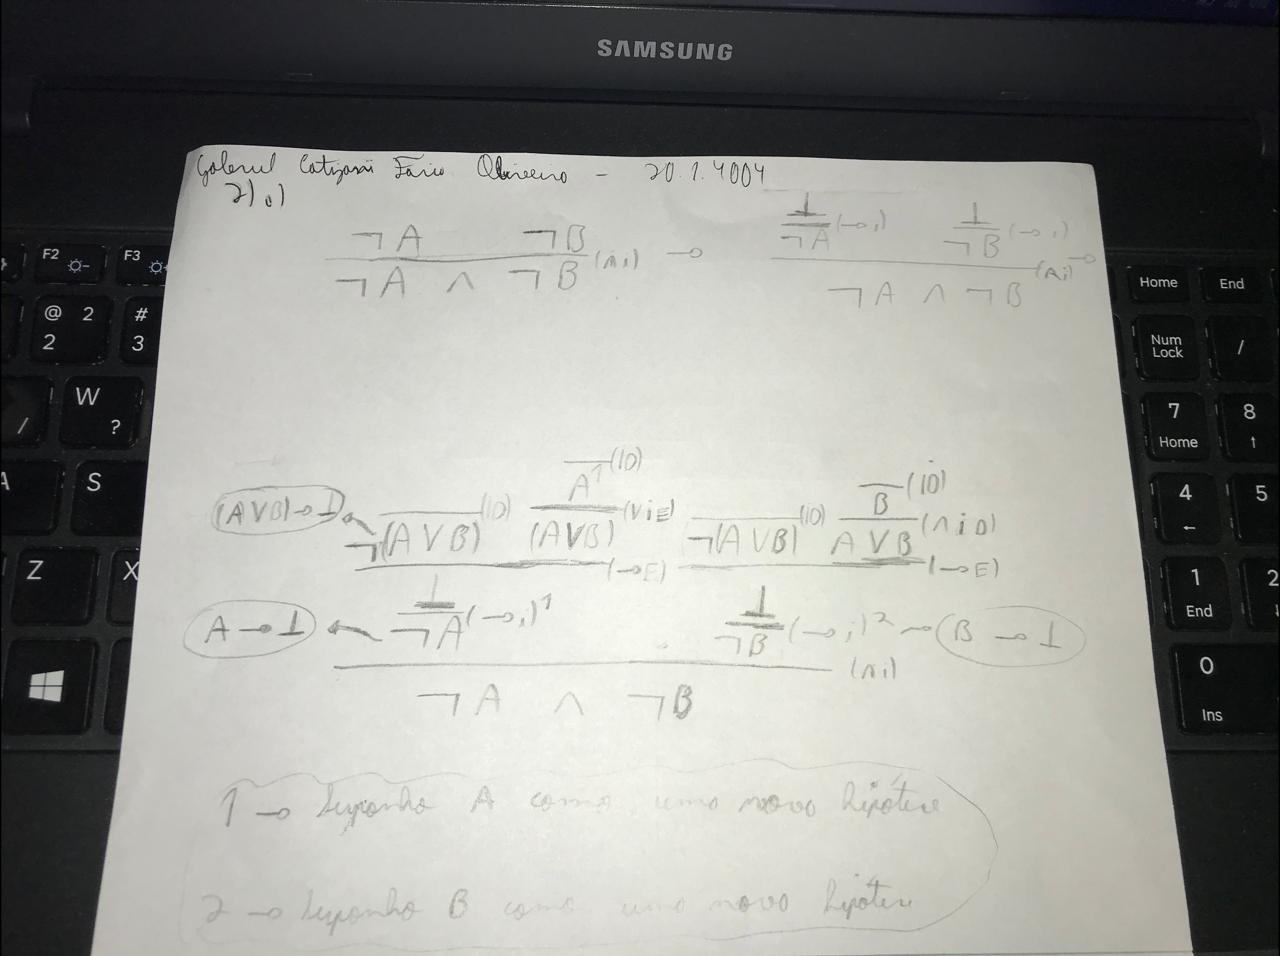 SAMSUNG
Gabriel Catizani Faria Oliveira - 20.1.4004
2) a)
¬A ¬B
¬A ∧ ¬B (∧i) →
⊥ ⊥
¬A (→i) ¬B (→i)
¬A ∧ ¬B (∧i) →
A¹ (ID) B (ID)
(A∨B)→⊥ ← ¬(A∨B) (ID) (A∨B) (∨iE) ¬(A∨B) (ID) A∨B (∧iD)
(→E) (→E)
⊥ ⊥
A→⊥ ← ¬A (→i)¹ ¬B (→i)² → B→⊥
(∧i)
¬A ∧ ¬B
1 → Suponho A como uma nova hipótese
2 → Suponho B como uma nova hipótese
F2
F3
@ 2
2
#
3
W
/ ?
A
S
Z
X
Home
End
Num
Lock
/
7
Home
8
↑
4
←
5
1
End
2
0
Ins